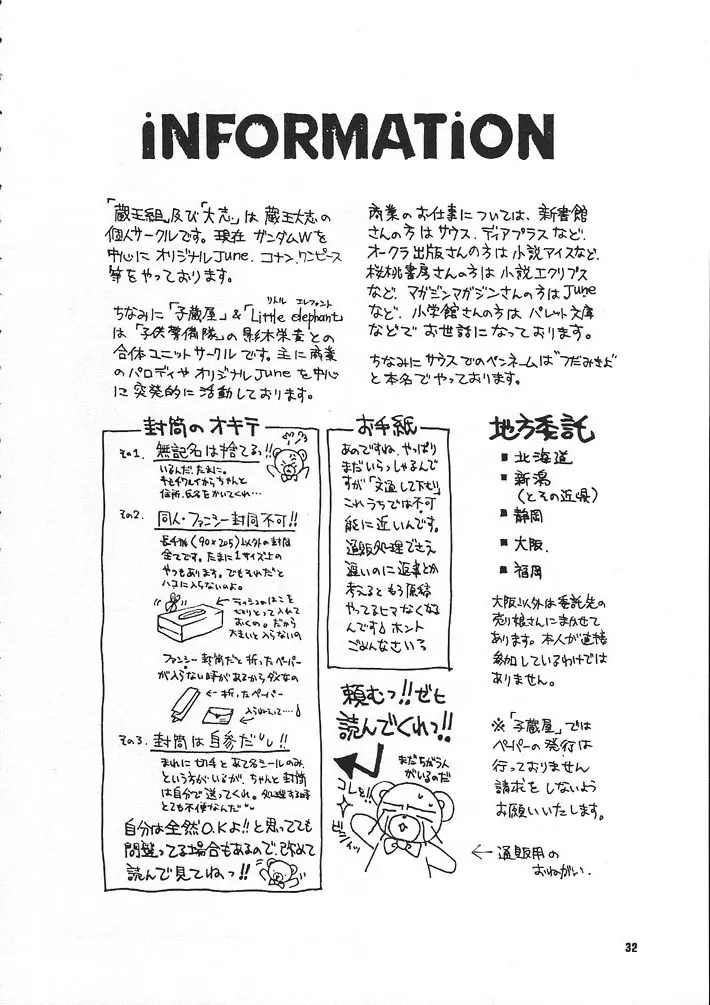 iNFORMATiON
「蔵王組」及び「大志」は 蔵王大志の
個人サークルです。現在 ガンダムWを
中心に オリジナルJune、コナン、ワンピース
等をやっております。
リトル エレファント
ちなみに「子蔵屋」&「Little elephant」
は「子供警備隊」の影木栄貴との
合体ユニットサークルです。主に商業
のパロディやオリジナルJuneを中心
に突発的に活動しております。
商業のお仕事については、新書館
さんの方は サウス、ディアプラスなど、
オークラ出版さんの方は小説アイスなど、
桜桃書房さんの方は小説エクリプス
など、マガジンマガジンさんの方はJune
など、小学館さんの方は パレット文庫
などで お世話になっております。
ちなみに サウスでのペンネームは"つだみきよ"
と本名でやっております。
封筒のオキテ
その1. 無記名は捨てるっ!!
いるんだ、たまに。
キモチワルイからちゃんと
住所、氏名をかいてくれ…
その2. 同人・ファンシー封筒不可!!
長4形(90×205)以外の封筒
全てです。たまに1サイズ上の
やつもあります。でもそれだと
ハコに入らないのよ。
←ティシュのはこを
きりとって入れて
おくの。だから
大きいと入らないの
ファンシー封筒だと折ったペーパー
が入らない時があるからダメなの
←折ったペーパー
入らねえって…
その3. 封筒は自参だ!!
まれに切手とあて名シールのみ、
という方がいるが、ちゃんと封筒
は自分で送ってくれ。処理する時
とても不便なんだ
自分は全然O.Kよ!!と思ってても
間違ってる場合もあるので、改めて
読んで見てねっ!!
お手紙
あのですね、やっぱり
まだいらっしゃるんで
すが「文通して下さい」
これうちでは不可
能に近いんです。
通販処理でさえ
遅いのに返事とか
考えるともう原稿
やってるヒマなくなる
んです ホント
ごめんなさい
頼むっ!!ゼヒ
読んでくれっ!!
まだちがう人
がいるのだ
コレを!!
ビシィッ
←通販用の
おねがい.
地方委託
■ 北海道
■ 新潟
(とその近県)
■ 静岡
■ 大阪
■ 福岡
大阪以外は委託先の
売り娘さんにまかせて
あります。本人が直接
参加しているわけでは
ありません。
※「子蔵屋」では
ペーパーの発行は
行っておりません
請求をしないよう
お願いいたします。
32